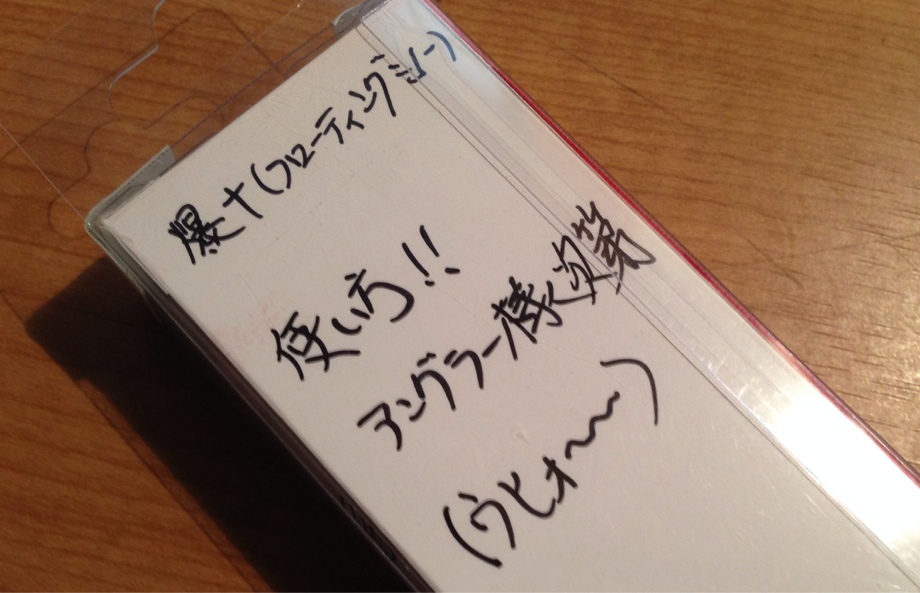 爆十(フローティングミノー)
使い方!!
アングラー様次第
(ウヒォ〜〜)